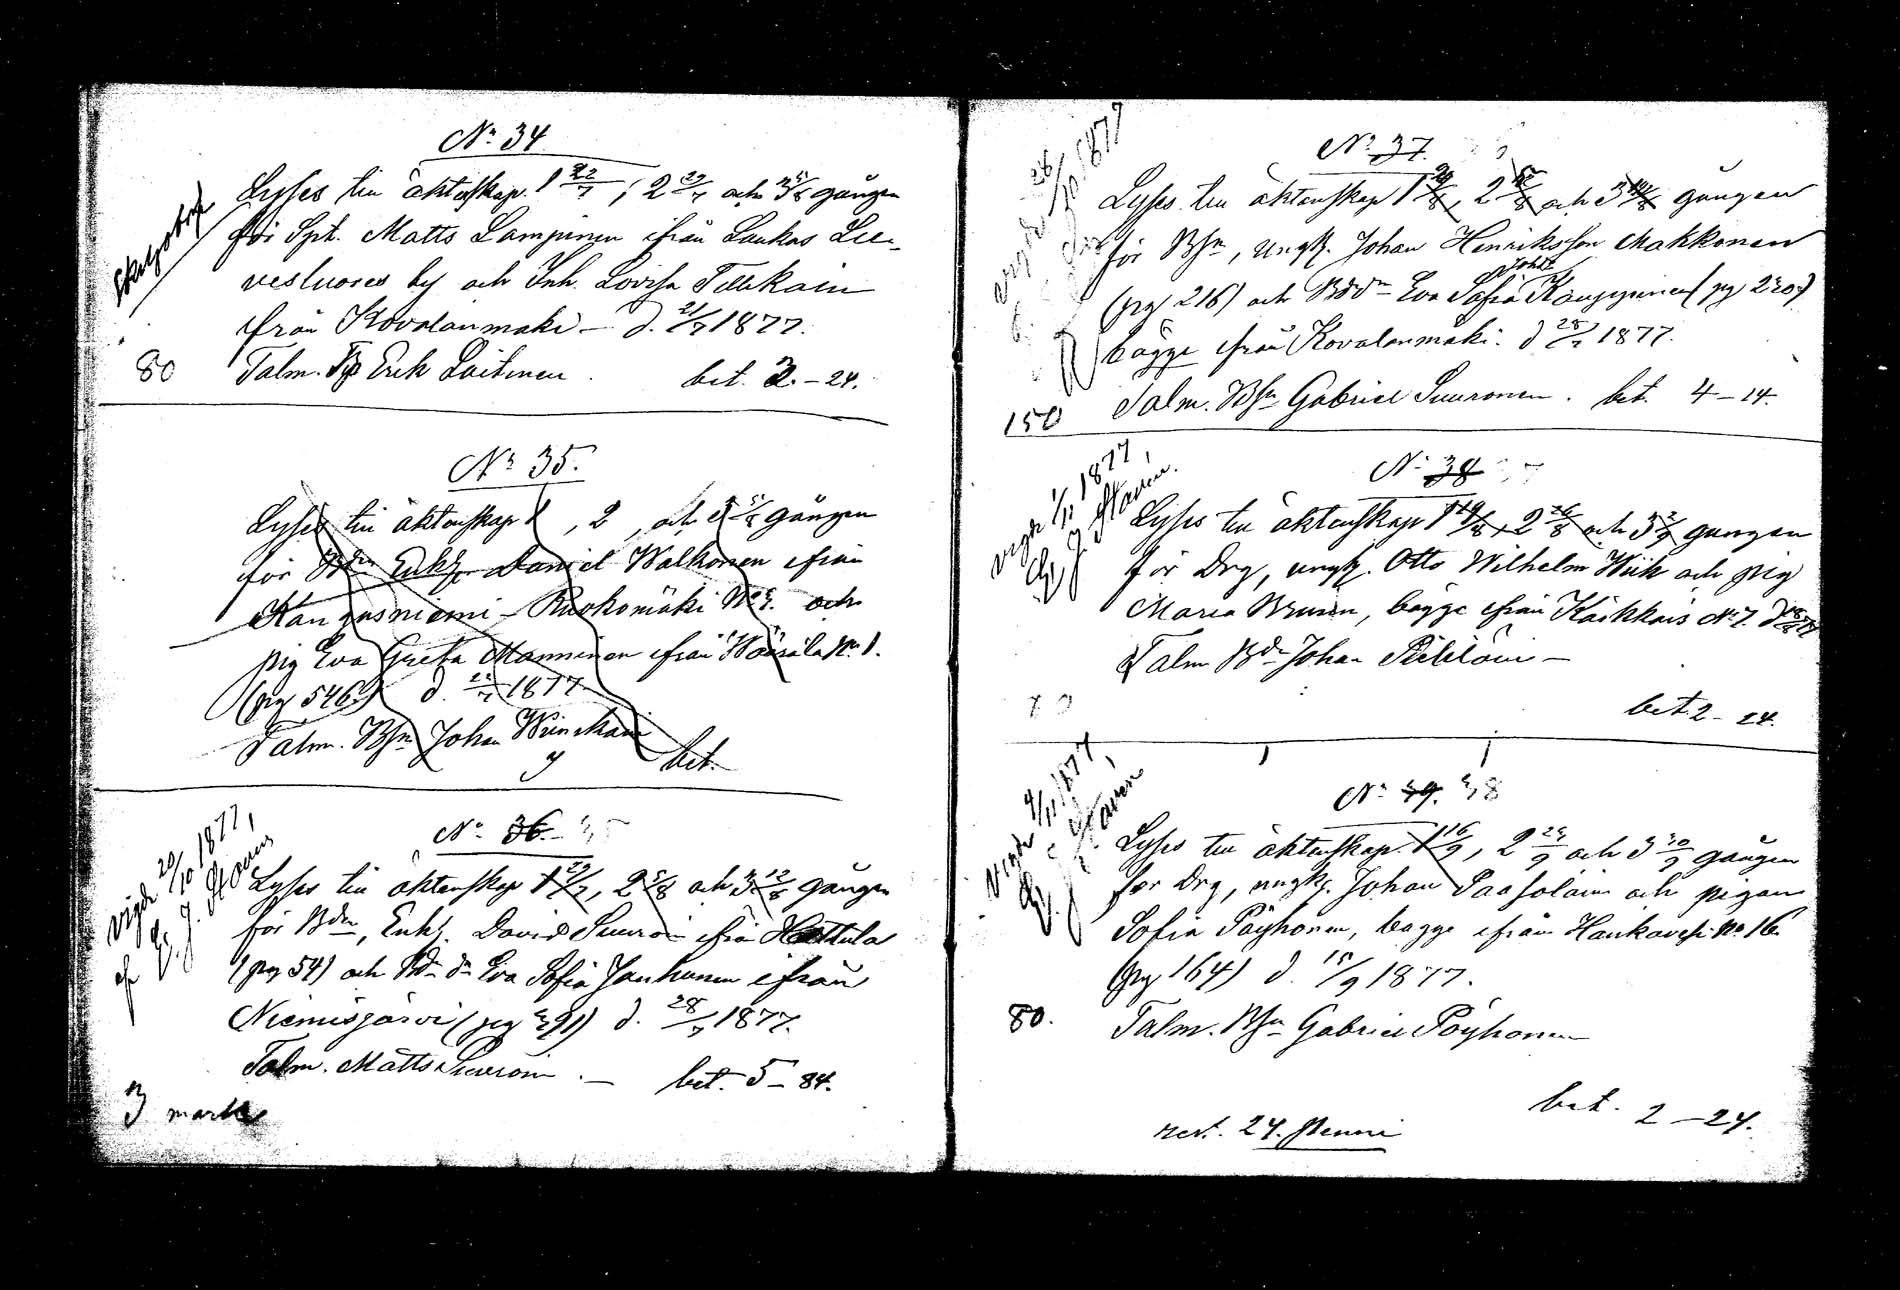 No 34
Lyses till äktenskap 1 22/7, 2 29/7 och 3 5/8 gången
för Spt. Matts Lampinen ifrån Laukas Lie-
vestuores by och Inh. Lovisa Tikkain
från Kovalanmäki – d. 21/7 1877.
80
Talm. Erik Laitinen. bet. 2.–24.
No 35.
Lyses till äktenskap 1, 2, och 3 5/8 gången
för Enkl. Daniel Walkonen ifrån
Kangasniemi Ruokomäki No och
pig Eva Greta Manninen ifrån No 1.
(pg 546.) d. 22/7 1877
Talm. Bsn Johan bet.
vigde 20/10 1877,
af J. Hovén
No 36. 35
Lyses till äktenskap 1 29/7, 2 5/8 och 3 12/8 gången
för Bdn, Enkl. David Suuroin ifrån Hottula
(pg 54) och Bde dr Eva Sofia Janhunen ifrån
Niemisjärvi (pg 391) d. 28/7 1877.
Talm. Matts Suuroin. – bet. 5–84.
3 mark
1877
No 37.
Lyses till äktenskap 1, 2 och 3 gången
för Bsn, ungk. Johan Henriksson Makkonen
(pg 216) och Bddr Eva Sofia Kauppinen (pg 220.)
bägge ifrån Kovalanmäki. d 28/7 1877.
150
Talm. Bsn Gabriel Suuronen. bet. 4–14.
vigde 1/11 1877,
J.
No 38 37
Lyses till äktenskap 1 19/8, 2 26/8 och 3 2/9 gången
för Drg, ungk. Otto Wilhelm Wiik och pig
Maria Brusin, bägge ifrån Käkkäis No 7. d
Talm Bdn Johan
bet. 2–24.
vigde 4/11 1877,
J.
No 39. 38
Lyses till äktenskap 1 16/9, 2 23/9 och 3 30/9 gången
för Drg, ungk. Johan Paasolain och pigan
Sofia Pöyhönen, bägge ifrån Hankavesi No 16
(pg 164) d. 15/9 1877.
80.
Talm. Bsn Gabriel Pöyhönen
bet. 2–24.
rest. 24. penni